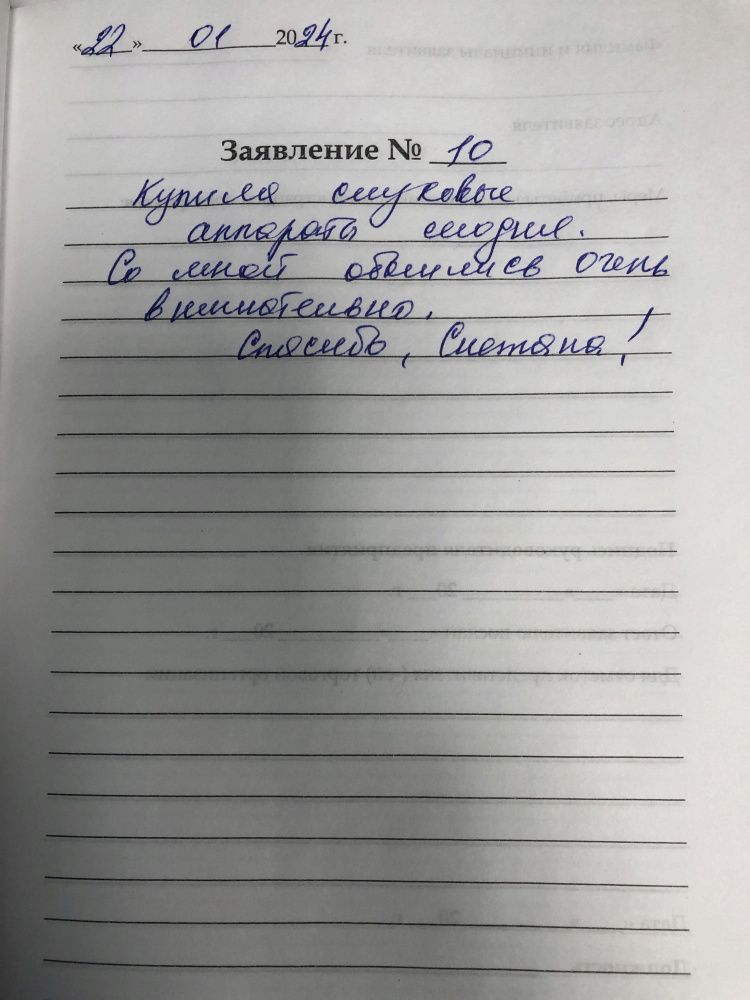 «22» 01 2024 г.
Заявление № 10
Купила слуховые
аппараты сегодня.
Со мной обошлись очень
внимательно.
Спасибо, Снежана!